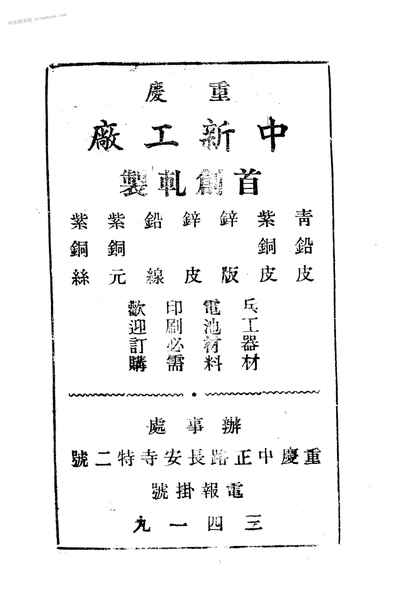 重慶
中新工廠
首創軋製
青鉛皮
紫銅皮
鋅版
鋅皮
鉛線
紫銅元
紫銅絲
兵工器材
電池材料
印刷必需
歡迎訂購
辦事處
重慶中正路長安寺特二號
電報掛號
三四一九